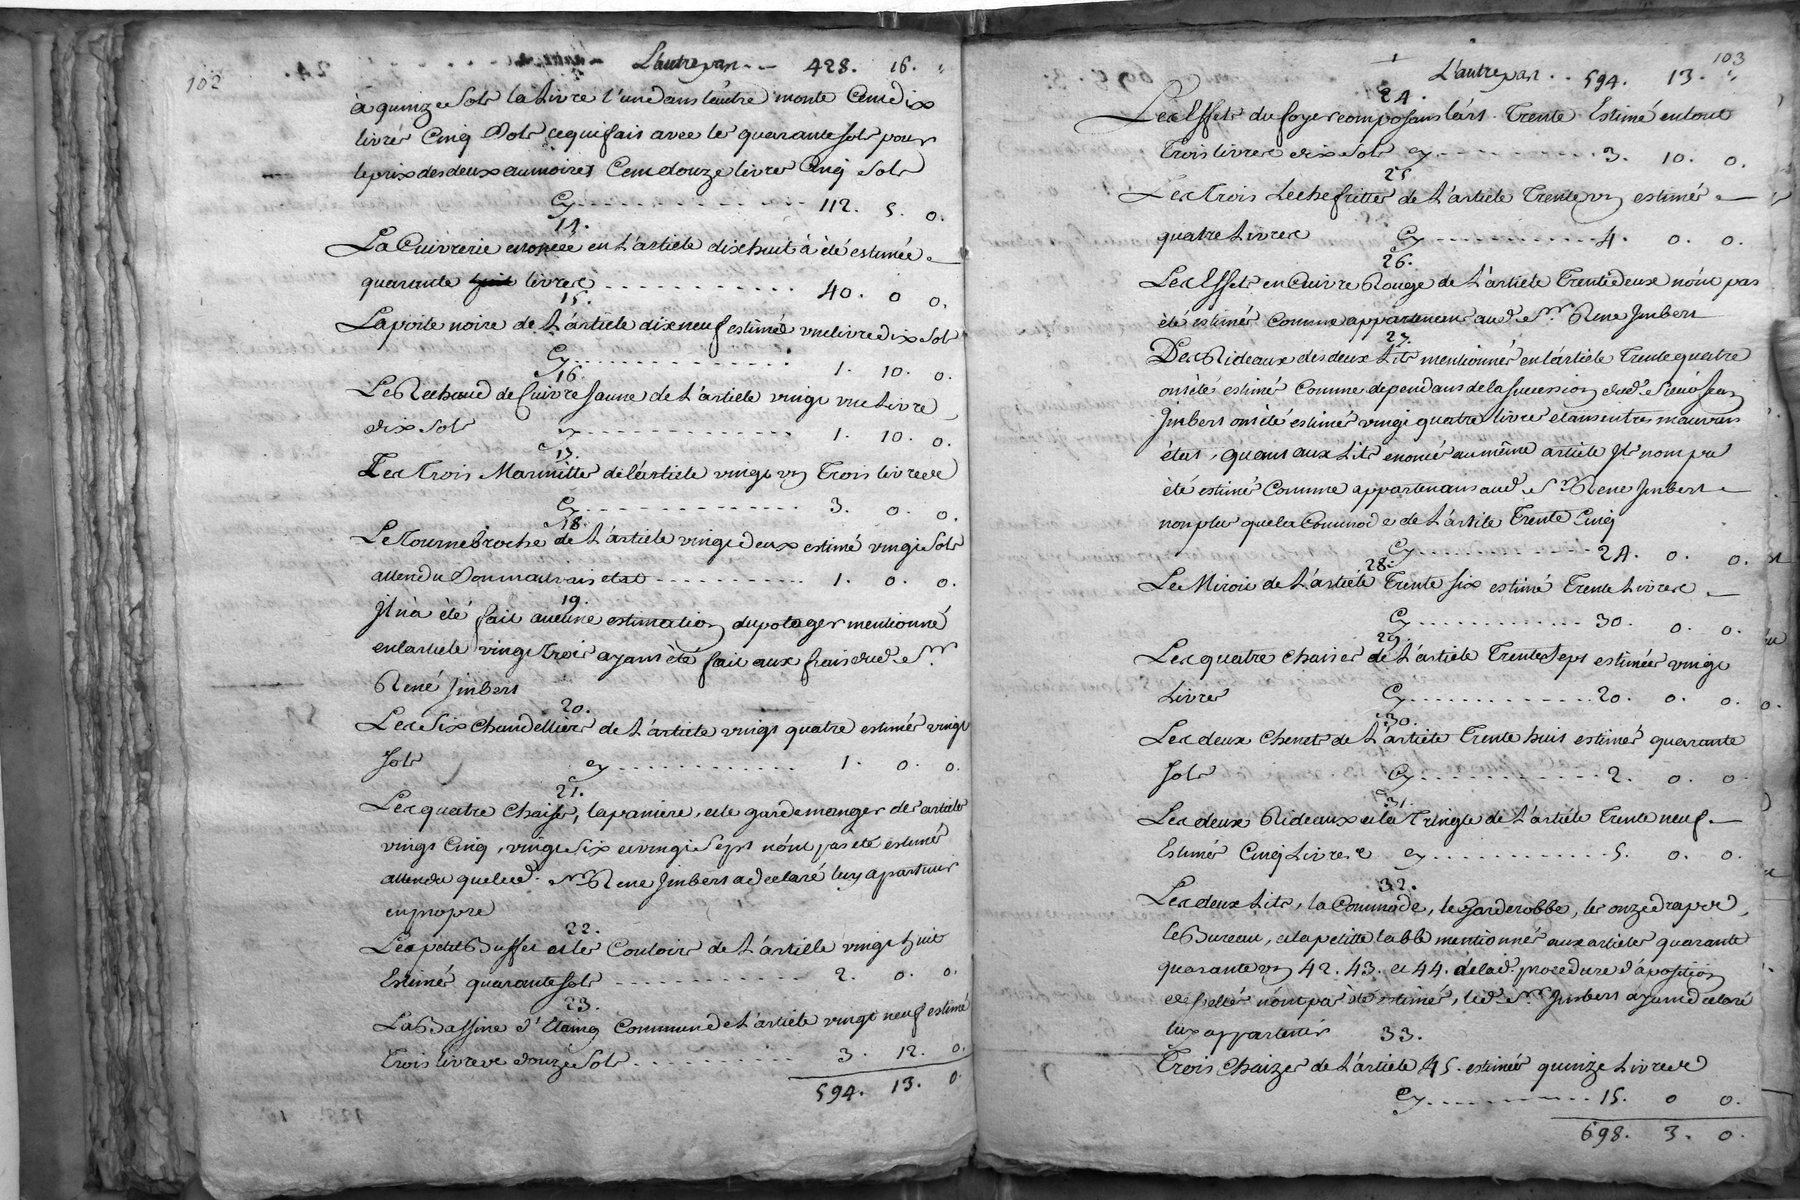 102
L'autre part -- 428. 16. "
à quinze Sols la Livre l'une dans l'autre monte Cent dix
livres Cinq Sols ce qui fais avec les quarante sols pour
le prix des deux armoires Cent douze livres Cinq Sols
Cy ------------ 112. 5. 0.
14.
La Cuivrerie enoncée en L'article dixhuit à été estimée
quarante livres ............ 40. 0 0.
15.
La poile noire de L'article dix neuf estimée une livre dix Sols
Cy ............ 1. 10. 0.
16.
Le Rechaud de Cuivre Jaune de L'article vingt une Livre
dix Sols cy ------------ 1. 10. 0.
17.
Les Trois Marmittes de l'article vingt un Trois livres
Cy ------------ 3. 0. 0.
18.
Le Tournebroche de L'article vingt deux estimé vingt Sols
attendu Son mauvais etat ------------ 1. 0. 0.
19.
Il n'a été fait aucune estimation du potager mentionné
en l'article vingt Trois ayant été fait aux frais dud. Sr.
René Jmbert
20.
Les Six Chandelliers de L'article vingt quatre estimés vingt
Sols cy ............ 1. 0. 0.
21.
Les quatre Chaises, la paniere, et le garde manger des articles
vingt Cinq, vingt Six et vingt Sept n'ont pas été estimés
attendu que led. Sr. Rene Jmbert a declaré luy apartenir
en propre
22.
Les petit Buffet et les Couloirs de L'article vingt huit
Estimés quarante sols ------------ 2. 0. 0.
23.
La Bassine d'Etaing Commun de L'article vingt neuf estimé
Trois livres douze Sols ------------ 3. 12. 0.
594. 13. 0.
103
L'autre part .. 594. 13. "
24.
Les Effets du foyer composans l'art. Trente Estimé en tout
Trois livres dix Sols cy ............ 3. 10. 0.
25
Les Trois Lechefrittes de L'article Trente un estimés
quatre Livres Cy ............ 4. 0. 0.
26.
Les Effets en Cuivre Rouge de L'article Trente deux n'ont pas
été estimés Comme appartenans aud. Sr. Rene Jmbert
27.
Les Rideaux des deux Lits mentionnés en l'article Trente quatre
ont été estimés Comme dépendans de la Succession dud. Sieur Jean
Jmbert ont été estimés vingt quatre livres etans en tres mauvais
état, quant aux Lits enoncés au même article Jls n'ont pas
été estimés Comme appartenans aud. Sr. Rene Jmbert
non plus que la Commode de L'article Trente Cinq
Cy ............ 24. 0. 0.
28.
Le Miroir de L'article Trente Six estimé Trente Livres
Cy ............ 30. 0. 0.
29.
Les quatre Chaises de L'article Trente Sept estimées vingt
Livres Cy ............ 20. 0. 0.
30.
Les deux Chenets de L'article Trente huit estimés quarante
Sols Cy ............ 2. 0. 0.
31.
Les deux Rideaux et la Tringle de L'article Trente neuf
Estimés Cinq Livres cy ............ 5. 0. 0.
32.
Les deux Lits, la Commode, le Garderobbe, les onze draps,
le Bureau, et la petitte table mentionnés aux articles quarante
quarante un 42. 43. et 44. de lad. procedure d'aposition
de scellés n'ont pas été estimés, led. Sr. Jmbert ayant declaré
luy appartenir
33.
Trois Chaizes de L'article 45. estimées quinze Livres
Cy ............ 15. 0 0.
698. 3. 0.